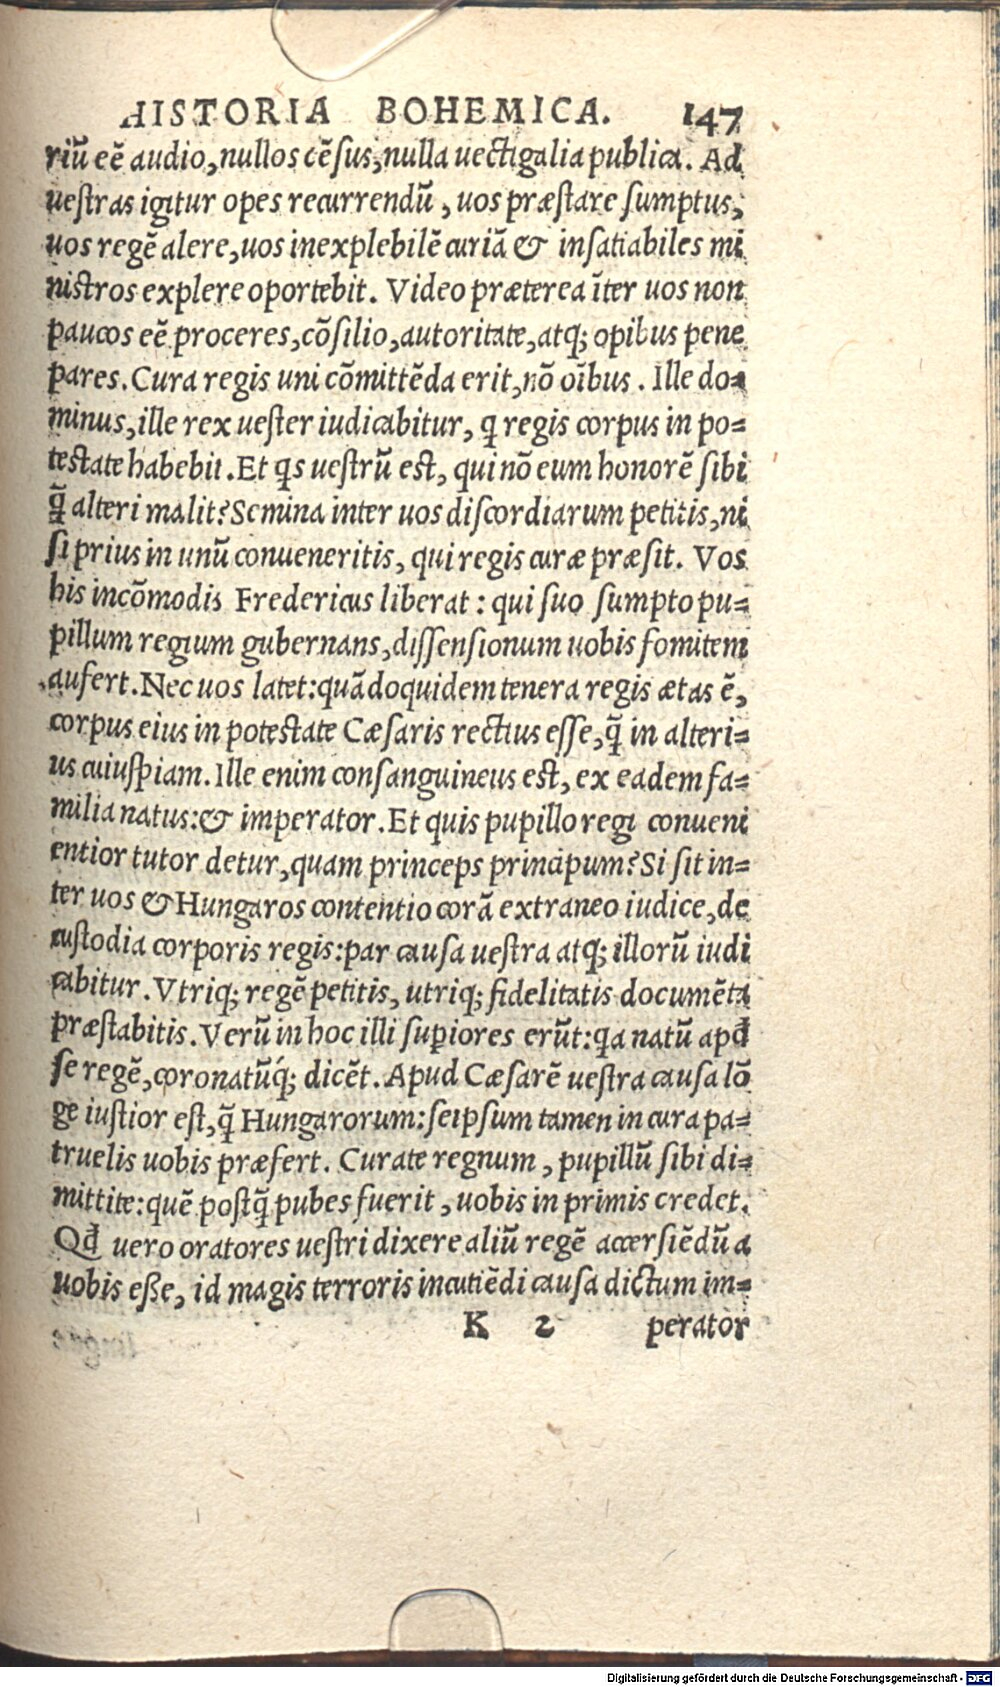 HISTORIA BOHEMICA. 147
riũ eẽ audio, nullos cẽſus, nulla uectigalia publica. Ad
ueſtras igitur opes recurrendũ, uos præſtare ſumptus,
uos regẽ alere, uos inexplebilẽ curiã & inſatiabiles mi
niſtros explere oportebit. Video præterea ĩter uos non
paucos eẽ proceres, cõſilio, autoritate, atq; opibus pene
pares. Cura regis uni cõmittẽda erit, nõ oĩbus. Ille do=
minus, ille rex ueſter iudicabitur, q regis corpus in po=
teſtate habebit. Et qs ueſtrũ eſt, qui nõ eum honorẽ ſibi
q̃ alteri malit? Semina inter uos diſcordiarum petitis, ni
ſi prius in unũ conueneritis, qui regis curæ præſit. Vos
his incõmodis Fredericus liberat: qui ſuo ſumpto pu=
pillum regium gubernans, diſſenſionum uobis fomitem
aufert. Nec uos latet: quãdoquidem tenera regis ætas ẽ,
corpus eius in poteſtate Cæſaris rectius eſſe, q̃ in alteri=
us cuiuſpiam. Ille enim conſanguineus eſt, ex eadem fa=
milia natus: & imperator. Et quis pupillo regi conueni
entior tutor detur, quam princeps principum? Si ſit in=
ter uos & Hungaros contentio corã extraneo iudice, de
cuſtodia corporis regis: par cauſa ueſtra atq; illorũ iudi
cabitur. Vtriq; regẽ petitis, utriq; fidelitatis documẽta
præſtabitis. Verũ in hoc illi ſupiores erũt: qa natũ apđ
ſe regẽ, coronatũq́; dicẽt. Apud Cæſarẽ ueſtra cauſa lõ
ge iuſtior eſt, q̃ Hungarorum: ſeipſum tamen in cura pa=
truelis uobis præfert. Curate regnum, pupillũ ſibi di=
mittite: quẽ poſtq̃ pubes fuerit, uobis in primis credet.
Qđ uero oratores ueſtri dixere aliũ regẽ accerſiẽdũ a
uobis eße, id magis terroris incutiẽdi cauſa dictum im=
K 2 perator
Digitalisierung gefördert durch die Deutsche Forschungsgemeinschaft - DFG